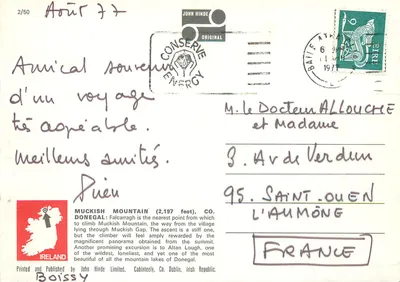 2/50
Août 77
JOHN HINDE
ORIGINAL
CONSERVE
ENERGY
BAILE
6
197
EIRE
Amical souvenir
d'un voyage
très agréable.
meilleures amitiés.
M. le Docteur ALLOUCHE
et Madame
3. Av de Verdun
95. SAINT. OUEN
L'AUMÔNE
FRANCE
MUCKISH MOUNTAIN (2,197 feet), CO.
DONEGAL: Falcarragh is the nearest point from which
to climb Muckish Mountain, the way from the village
lying through Muckish Gap. The ascent is a stiff one,
but the climber will feel amply rewarded by the
magnificent panorama obtained from the summit.
Another promising excursion is to Altan Lough, one
of the wildest, loneliest, and yet one of the most
beautiful of all the mountain lakes of Donegal.
IRELAND
Printed and Published by John Hinde Limited, Cabinteely, Co. Dublin, Irish Republic.
BOISSY